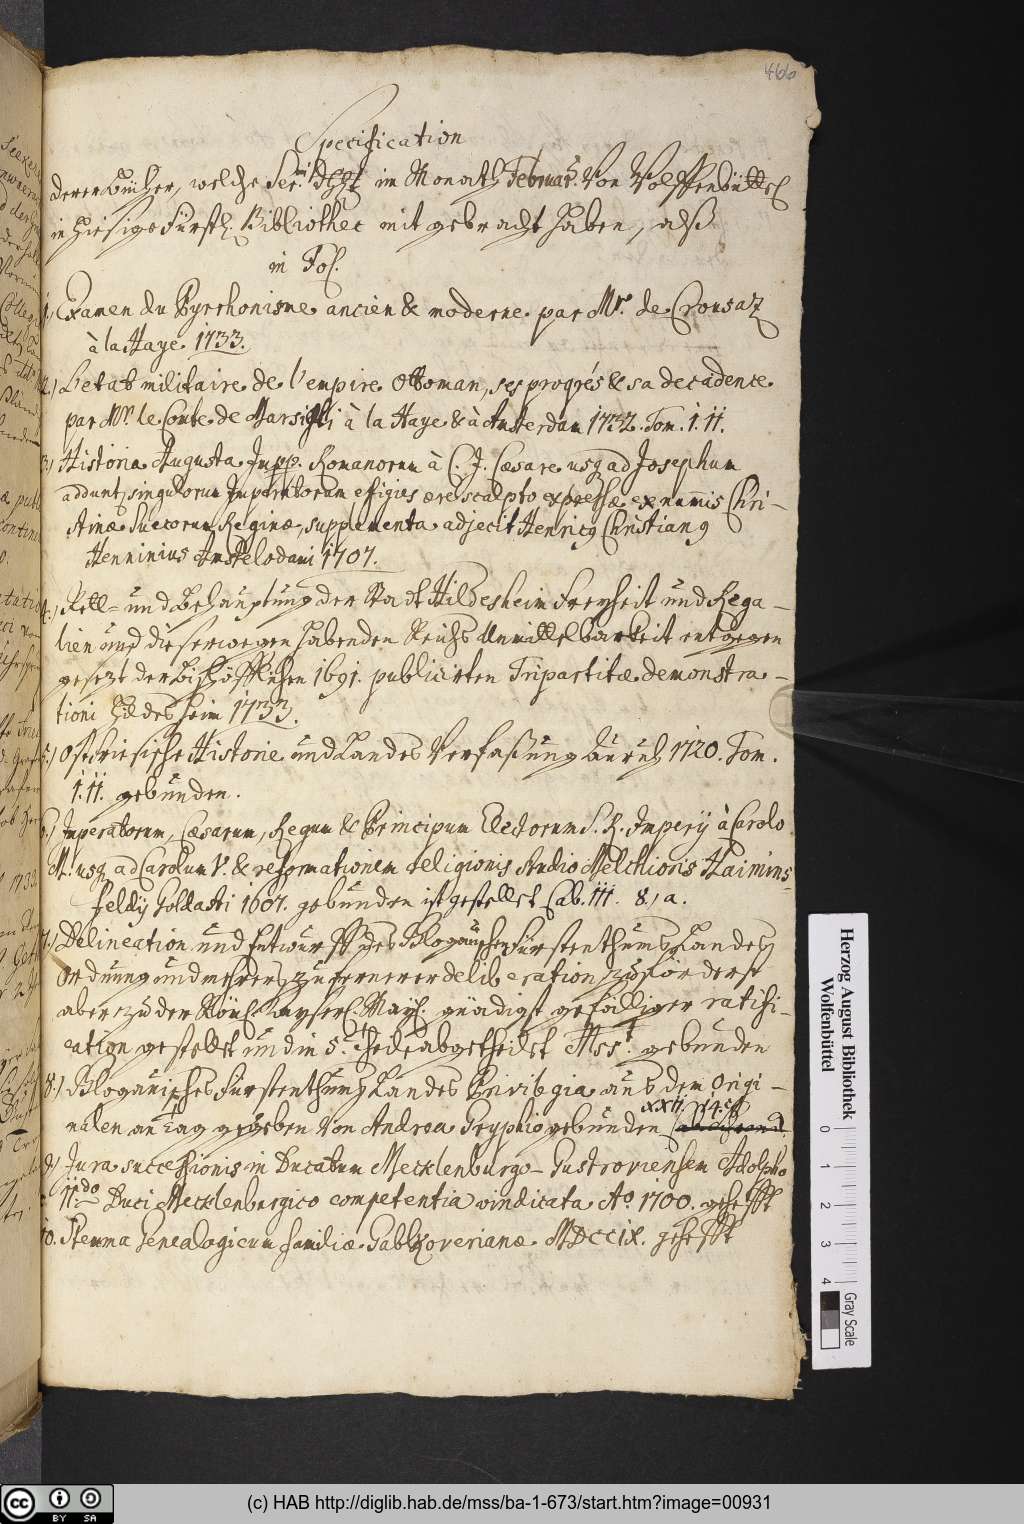 466
Specification
derer Bücher, welche Ser.mi Dhlt im Monath Februar. von Wolffenbüttel
in hiesige Fürstl. Bibliothec mit gebracht haben, alß
in Fol.
1.) Examen du Pyrrhonisme ancien & moderne par Mr. de Crousaz
à la Haye 1733.
2.) L'etat militaire de l'empire Ottoman, ses progrés & sa decadence
par Mr. le Comte de Marsigli à la Haye & à Amsterdam 1732. Tom. I. II.
3.) Historia Augusta Impp. Romanorum à C. J. Cæsare usq ad Josephum
addunt singulorum Imperatorum effigies ære scalpto expressæ ex numis Chri-
stinæ Suecorum Reginæ, supplementa adjecit Henricg Christiang
Henninius Amstelodami 1707.
4.) Rett- und Behauptung der Stadt Hildesheim Freyheit und Rega-
lien und dieserwegen habenden Reichs Unmittelbarkeit entgegen
gesezt der Bischöfflichen 1691. publicirten Tripartitæ demonstra-
tioni Hildesheim 1733.
5.) Ostfriesische Historie und Landes Verfaßung Aurich 1720. Tom.
I. II. gebunden.
6.) Imperatorum, Cæsarum, Regum & Principum Electorum S. R. Imperij à Carolo
M. usq ad Carolum V. & reformationem religionis studio Melchioris Haimins-
feldij Goldasti 1607. gebunden ist gestellet Cab. III. 8, a.
7.) Delineation und Entwurff des Glogauischen Fürstenthums Landes
Ordnung und mehrers zu fernerer deliberation, zuförderst
aber zu der Königl. Kayserl. Mayt. gnädigst gefälliger ratifi-
cation gestellet und in 5. theile abgetheilet Msst. gebunden
8.) Glogauisches Fürstenthums Landes Privilegia aus dem Origi-
nalen an Tag gegeben von Andrea Gryphio gebunden XXII. 14.
9.) Jura successionis in Ducatum Mecklenburgo-Gustroviensem Adolpho
II.do Duci Mecklenburgico competentia vindicata Ao. 1700. gehefft
10. Stemma Genealogicum familiæ Gabkoverianæ MDCCIX. gehefft
Herzog August Bibliothek
Wolfenbüttel
0 1 2 3 4
Gray Scale
BY SA
(c) HAB http://diglib.hab.de/mss/ba-1-673/start.htm?image=00931